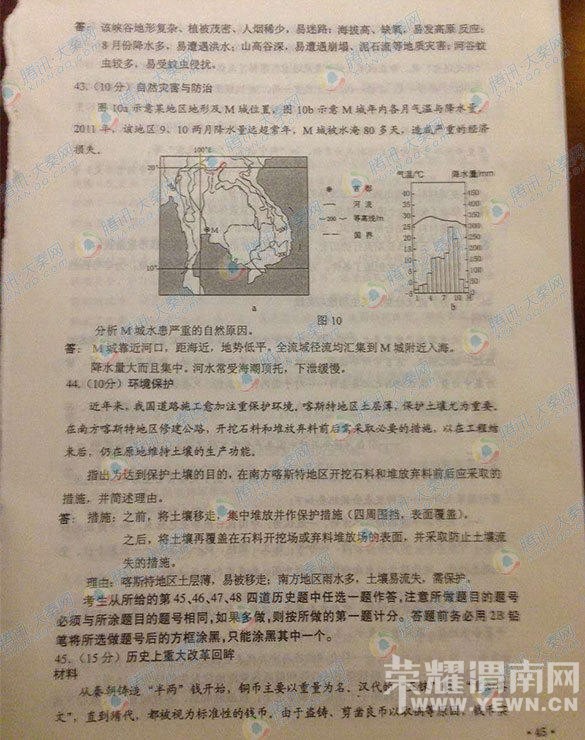 答：该峡谷地形复杂、植被茂密、人烟稀少，易迷路；海拔高、缺氧，易发高原反应；
8月份降水多，易遭遇洪水；山高谷深，易遭遇崩塌、泥石流等地质灾害；河谷蚊
虫较多，易受蚊虫侵扰。
43.（10分）自然灾害与防治
图10a示意某地区地形及M城位置，图10b示意M城年内各月气温与降水量。
2011年，该地区9、10两月降水量远超常年，M城被水淹80多天，造成严重的经济
损失。
100°E
20°
10°
M
a
首都
河流
—200— 等高线/m
国界
气温/℃ 降水量/mm
40 450
35 400
30 350
25 300
20 250
15 200
10 150
5 100
0 50
-5 0
1 4 7 10 月
b
图10
分析M城水患严重的自然原因。
答：M城靠近河口，距海近，地势低平。全流域径流均汇集到M城附近入海。
降水量大而且集中。河水常受海潮顶托，下泄缓慢。
44.（10分）环境保护
近年来，我国道路施工愈加注重保护环境。喀斯特地区土层薄，保护土壤尤为重要。
在南方喀斯特地区修建公路，开挖石料和堆放弃料前后需采取必要的措施，以在工程结
束后，仍在原地维持土壤的生产功能。
指出为达到保护土壤的目的，在南方喀斯特地区开挖石料和堆放弃料前后应采取的
措施，并简述理由。
答：措施：之前，将土壤移走，集中堆放并作保护措施（四周围挡，表面覆盖）。
之后，将土壤再覆盖在石料开挖场或弃料堆放场的表面，并采取防止土壤流
失的措施。
理由：喀斯特地区土层薄，易被移走；南方地区雨水多，土壤易流失，需保护。
考生从所给的第45、46、47、48四道历史题中任选一题作答，注意所做题目的题号
必须与所涂题目的题号相同，如果多做，则按所做的第一题计分。答题前务必用2B铅
笔将所选做题号后的方框涂黑，只能涂黑其中一个。
45.（15分）历史上重大改革回眸
材料
从秦朝铸造“半两”钱开始，铜币主要以重量为名。汉代
文”，直到隋代，都被视为标准性的钱币。由于盗铸、剪凿良币以
·45·
腾讯·大秦网
荣耀渭南网
WWW.YEWN.CN